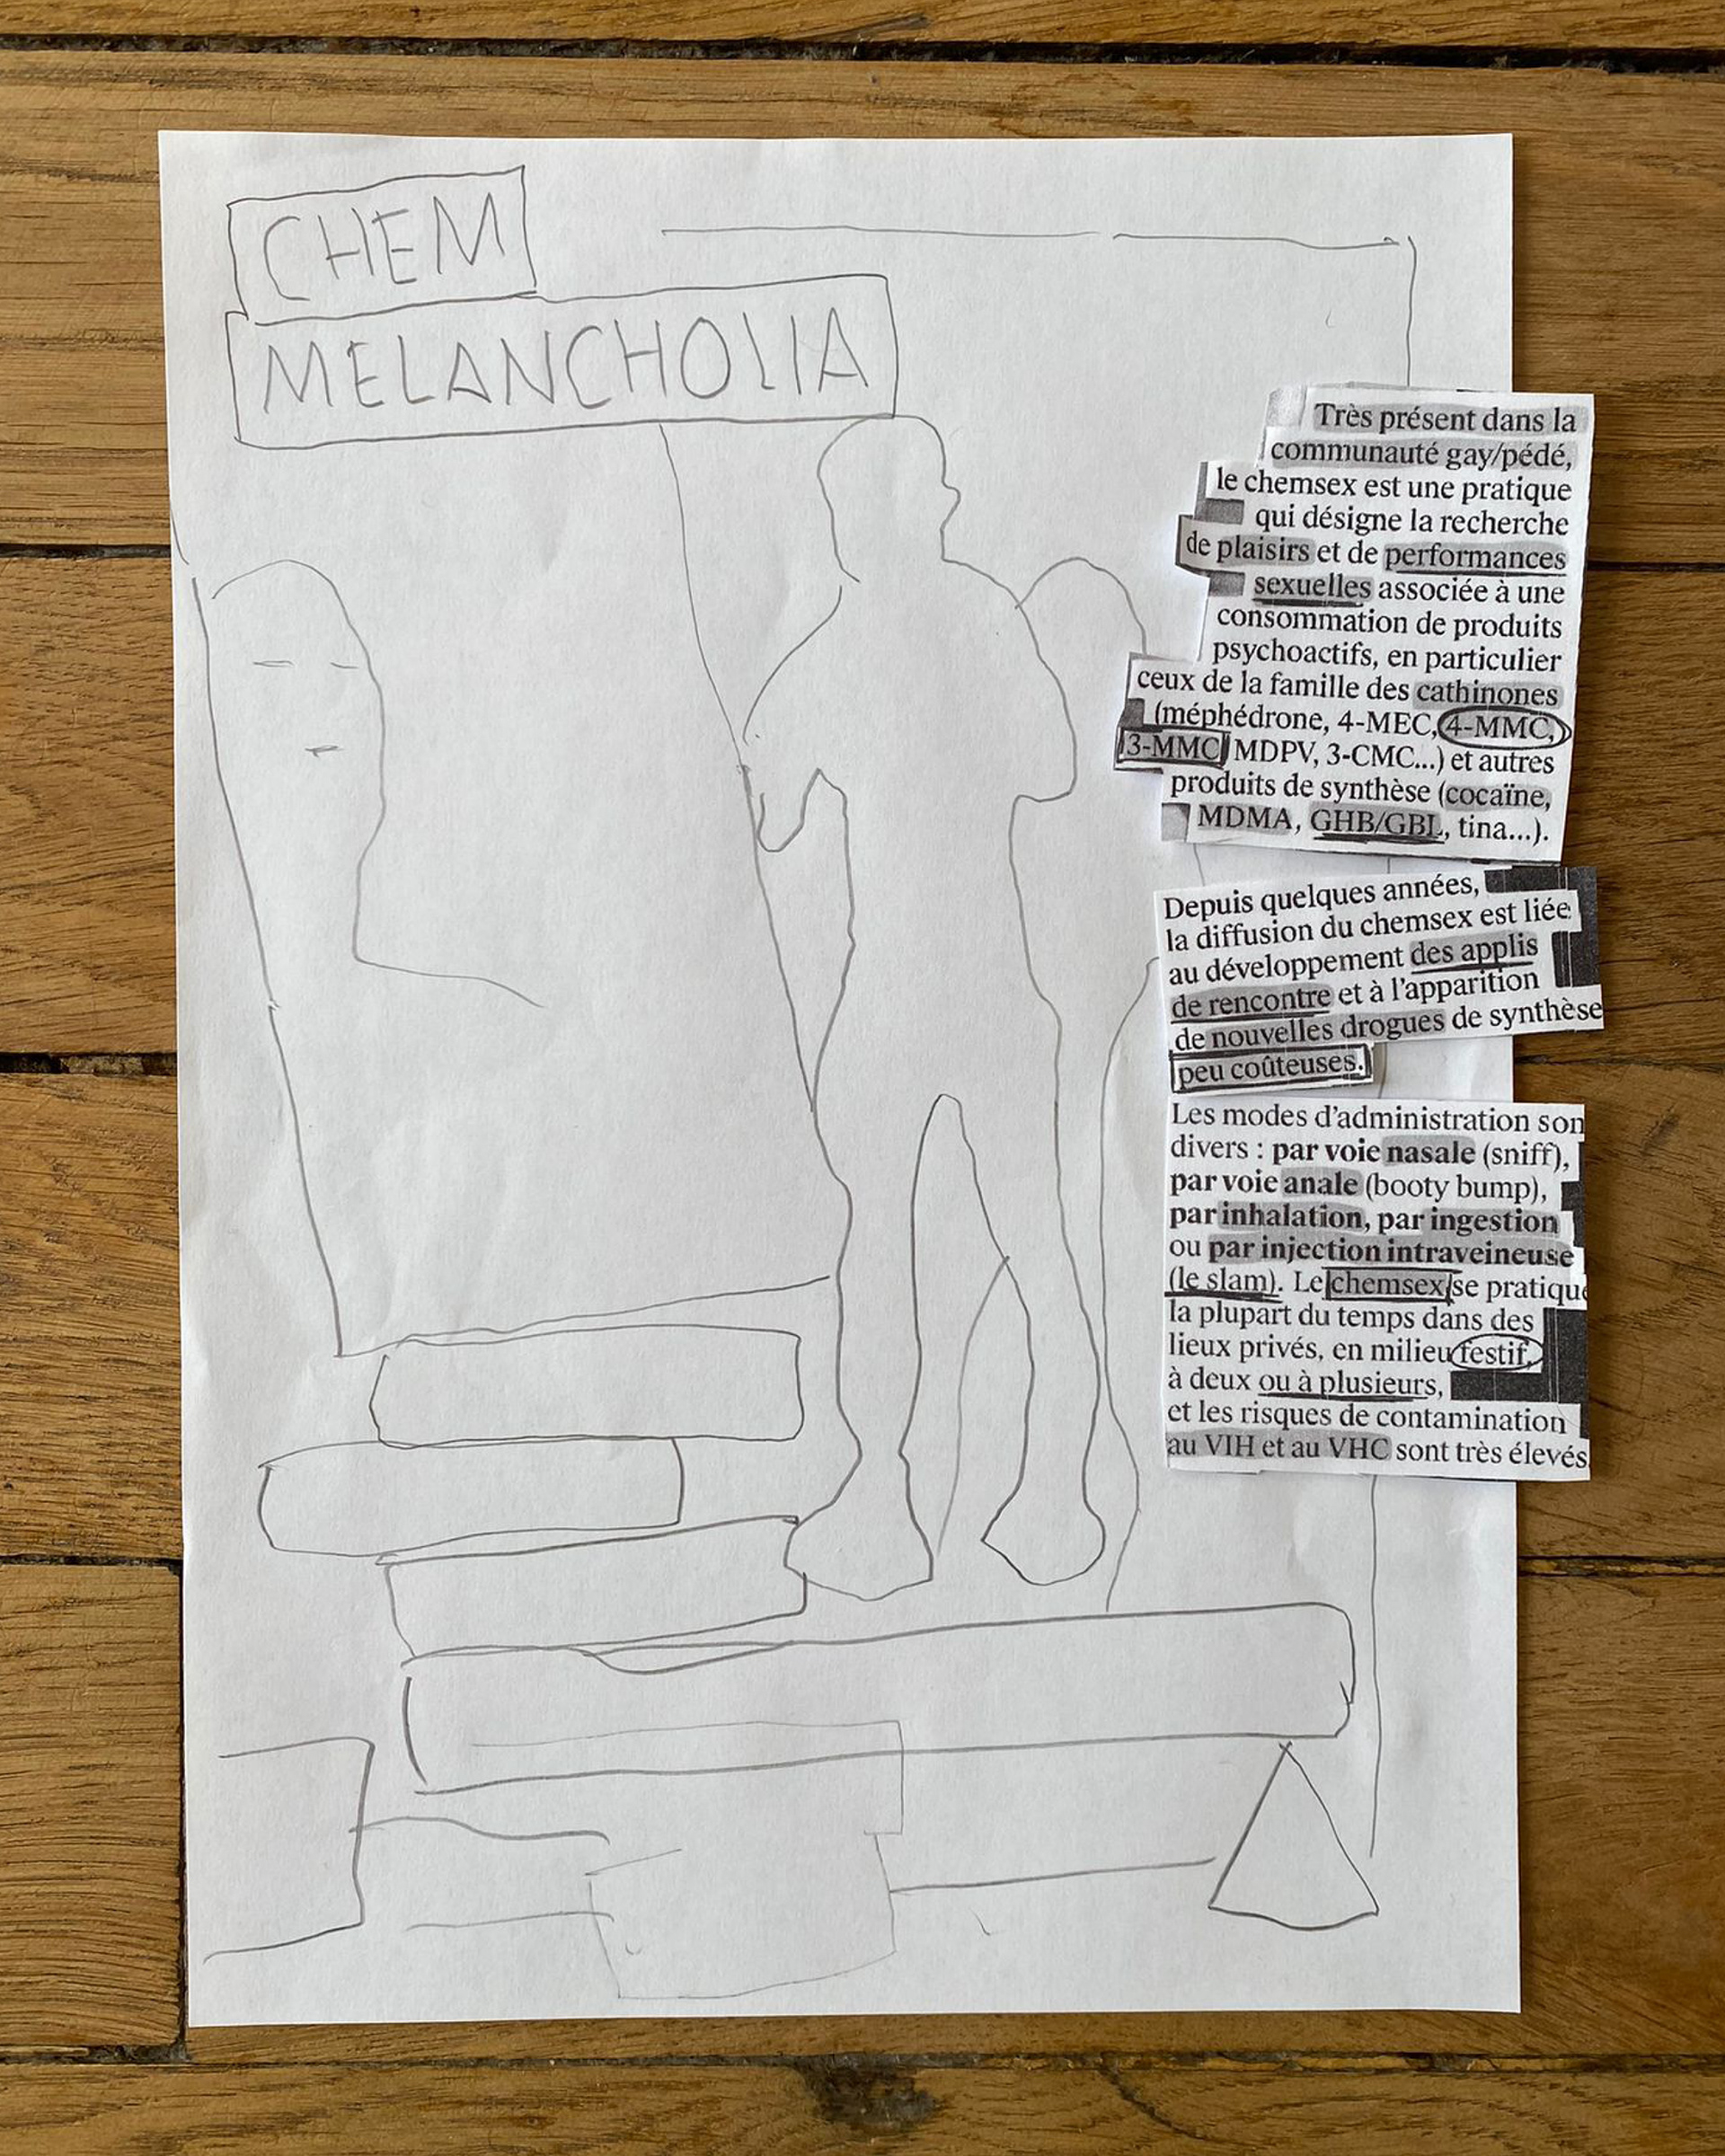 CHEM
MELANCHOLIA
Très présent dans la
communauté gay/pédé,
le chemsex est une pratique
qui désigne la recherche
de plaisirs et de performances
sexuelles associée à une
consommation de produits
psychoactifs, en particulier
ceux de la famille des cathinones
(méphédrone, 4-MEC, 4-MMC,
3-MMC MDPV, 3-CMC...) et autres
produits de synthèse (cocaïne,
MDMA, GHB/GBL, tina...).
Depuis quelques années,
la diffusion du chemsex est liée
au développement des applis
de rencontre et à l'apparition
de nouvelles drogues de synthèse
peu coûteuses.
Les modes d'administration son
divers : par voie nasale (sniff),
par voie anale (booty bump),
par inhalation, par ingestion
ou par injection intraveineuse
(le slam). Le chemsex se pratique
la plupart du temps dans des
lieux privés, en milieu festif,
à deux ou à plusieurs,
et les risques de contamination
au VIH et au VHC sont très élevés.